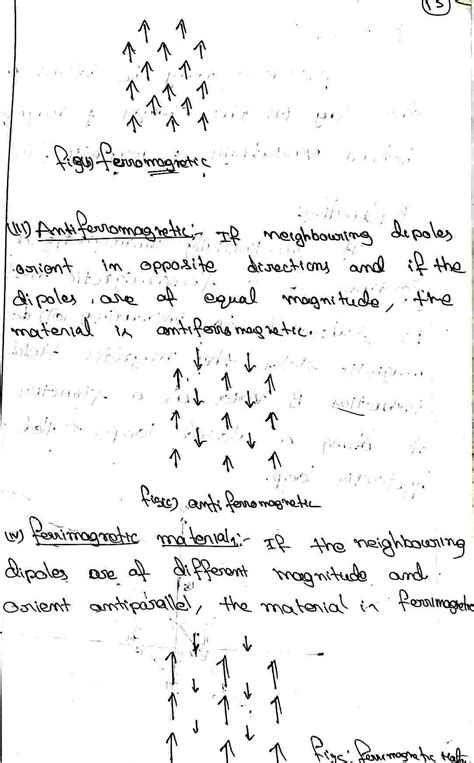 13
fig(b) ferromagnetic
(iii) Antiferromagnetic:- If neighbouring dipoles
orient in opposite directions and if the
dipoles are of equal magnitude, the
material is antiferromagnetic.
fig(c) anti ferromagnetic
(iv) ferrimagnetic materials:- If the neighbouring
dipoles are of different magnitude and
orient antiparallel, the material is ferrimagnetic
fig: ferrimagnetic